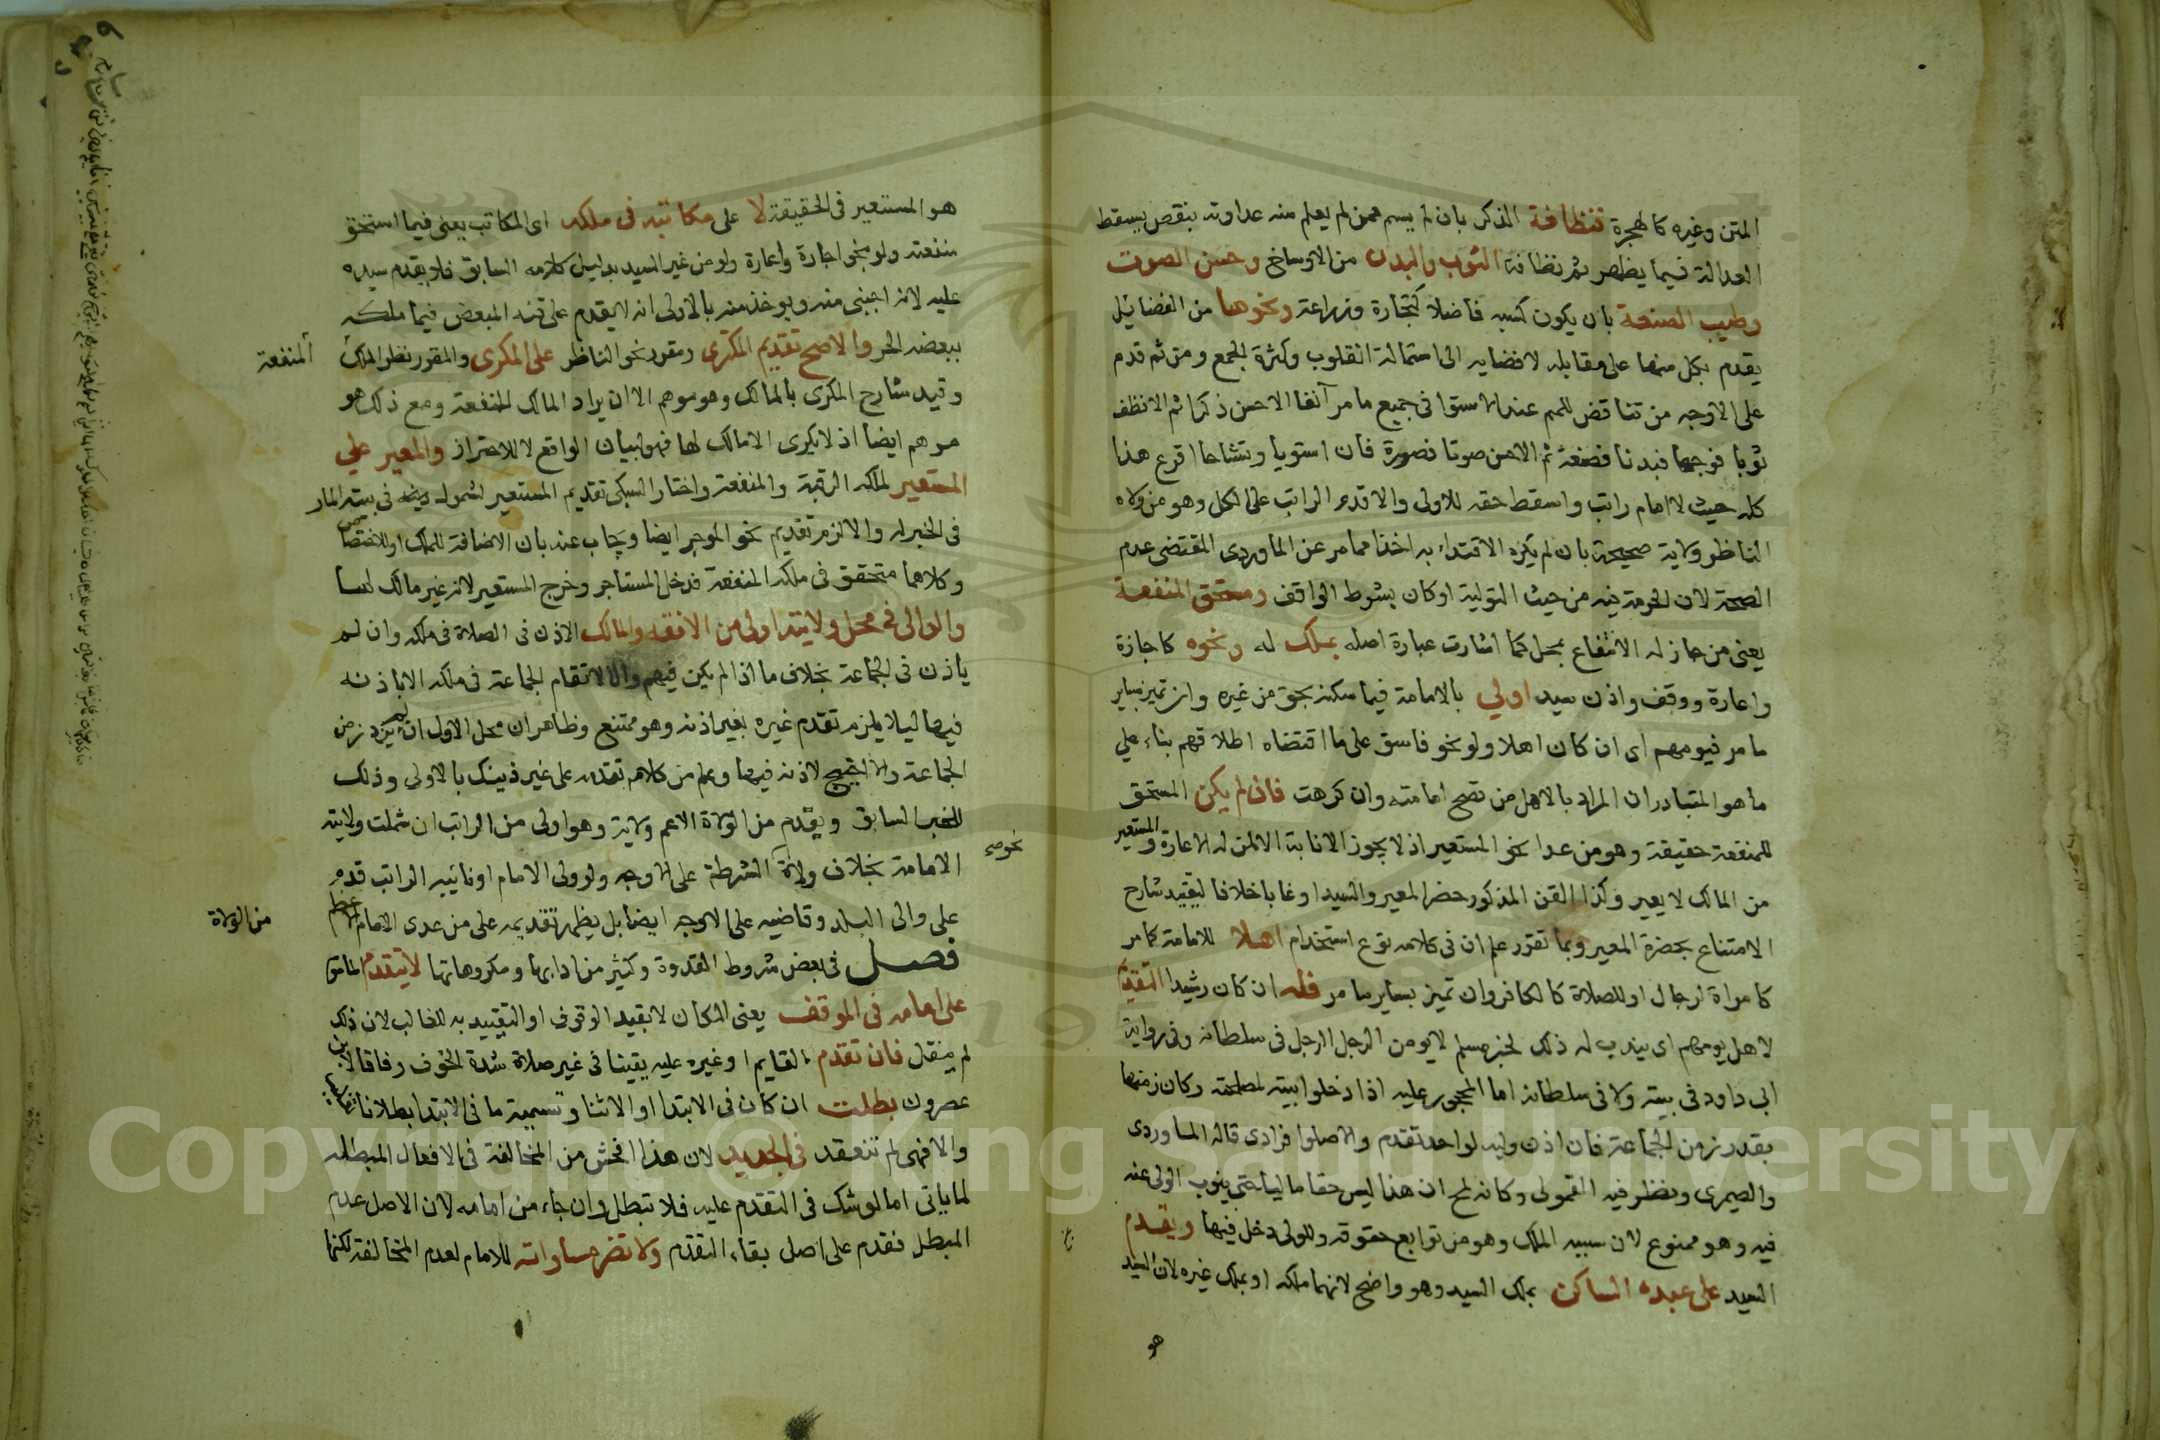 المتن وغيره كالهجرة فنظافة الذكر بان لم يسم ممن لم يعلم منه عداوته بنقص يسقط
العدالة فيما يظهر ثم نظافة الثوب والبدن من الاوساخ وحسن الصوت
وطيب الصنعة بان يكون كسبه فاضلا كتجارة وزراعة ونحوها من الفضائل
يقدم بكل منها على مقابله لافضايه الى استمالة القلوب وكثرة الجمع ومن ثم قدم
على الاوجه من تناقض للمم عند الاستوا في جميع ما مر آنفا الاحسن ذكرا ثم الانظف
ثوبا فوجها فبدنا فصنعة ثم الاحسن صوتا فصورة فان استويا وتشاحا اقرع هذا
كله حيث لا امام راتب واسقط حقه للاولى والا قدم الراتب على الكل وهو من ولاه
الناظر ولاية صحيحة بان لم يكره الاقتداء به اخذا مما مر عن الماوردي المقتضى عدم
الصحة لان الحرمة فيه من حيث التولية او كان بشرط الواقف ومستحق المنفعة
يعني من جاز له الانتفاع بمحل كما اشارت عبارة اصله بملك له ونحوه كاجازة
واعارة ووقف واذن سيد اولى بالامامة فيما سكنه بحق من غيره وان تميز بساير
ما مر فيومهم اى ان كان اهلا ولو نحو فاسق على ما اقتضاه اطلاقهم بناء على
ما هو المتبادر ان المراد بالاهل من تصح امامته وان كرهت فان لم يكن المستحق
للمنفعة حقيقة وهو من عدا نحو المستعير اذ لا يجوز الانابة الا لمن له الاعارة والمستعير
من المالك لا يعير وكذا القن المذكور حضر المعير والسيد او غابا خلافا لتقييد شارح
الامتناع بحضرة المعير وبما تقرر علم ان في كلامه نوع استخدام اهلا للامامة كما مر
كامراة لرجال او للصلاة كالكافر وان تميز بساير ما مر فله ان كان رشيدا التقديم
لاهل يومهم اى يندب له ذلك لخبر مسلم لا يومن الرجل الرجل في سلطانه وفى رواية
ابى داود في بيته ولا في سلطانه اما المحجور عليه اذا دخلوا بيته لمصلحته وكان زمنها
بقدر زمن الجماعة فان اذن وليه لواحد تقدم والا صلوا فرادى قاله الماوردى
والصيمرى ونظر فيه القمولى وكانه لمح ان هذا ليس حقا ماليا حتى ينوب الولى عنه
فيه وهو ممنوع لان سببه الملك وهو من توابع حقوقه وللولى دخل فيها ويقدم
السيد على عبده الساكن بملك السيد وهو واضح لانهما ملكه او بملك غيره لان السيد
هو
هو المستعير فى الحقيقة لا على مكاتبه فى ملكه اى المكاتب يعنى فيما استحق
منفعته ولو بنحو اجارة واعارة ولو من غير السيد بدليل كلامه السابق فلا يقدم سيده
عليه لانه اجنبى منه ويوخذ منه بالاولى انه لا يقدم على قنه المبعض فيما ملكه
ببعضه الحر والاصح تقديم المكترى ومقرر نحو الناظر على المكرى والمقرر نظرا لملك
المنفعة
وقيد شارح المكرى بالمالك وهو موهم الا ان يراد المالك للمنفعة ومع ذلك هو
موهم ايضا اذ لا يكرى الا مالك لها فهو لبيان الواقع لا للاحتراز والمعير على
المستعير لملكه الرقبة والمنفعة واختار السبكى تقديم المستعير لشمول في بيته المار
فى الخبر له والا لزم تقديم نحو الموجر ايضا ويجاب عنه بان الاضافة للملك او للاختصاص
وكلاهما متحقق فى ملكه المنفعة فدخل المستاجر وخرج المستعير لانه غير مالك لها
والوالى فى محل ولايته اولى من الافقه والمالك الاذن فى الصلاة فى ملكه وان لم
ياذن فى الجماعة بخلاف ما اذا لم يكن فيهم وال لا تقام الجماعة فى ملكه الا باذنه
فيها ليلا يلزم تقدم غيره بغير اذنه وهو ممتنع وظاهر ان محل الاول ان لم يزد زمن
الجماعة والا احتيج لاذنه فيها وعلم من كلامهم تقدمه على غير ذينك بالاولى وذلك
للخبر السابق ويقدم من الولاة الاعم ولاية وهو اولى من الراتب ان شملت ولايته
الامامة بخلاف ولاة الشرطة على الاوجه ولو ولى الامام او نائبه الراتب قدم
نحو
على والى البلد وقاضيه على الاوجه ايضا بل يظهر تقديمه على من عدى الامام الاعظم
من الولاة
فصل فى بعض شروط القدوة وكثير من ادابها ومكروهاتها لا يتقدم الماموم
على امامه فى الموقف يعنى المكان لا بقيد الوقوف او التقييد به للغالب لان ذلك
لم ينقل فان تقدم القايم او غيره عليه يقينا فى غير صلاة شدة الخوف وفاقا لابن ابى
عصرون بطلت ان كان فى الابتدا او الاثنا وتسمية ما فى الابتدا بطلانا
والا فهى لم تنعقد فى الجديد لان هذا افحش من المخالفة فى الافعال المبطلة
لما ياتى اما لو شك فى التقدم عليه فلا تبطل وان جاء من امامه لان الاصل عدم
المبطل فقدم على اصل بقاء التقدم ولا تضر مساواته للامام لعدم المخالفة لكنها
Copyright © King Saud University